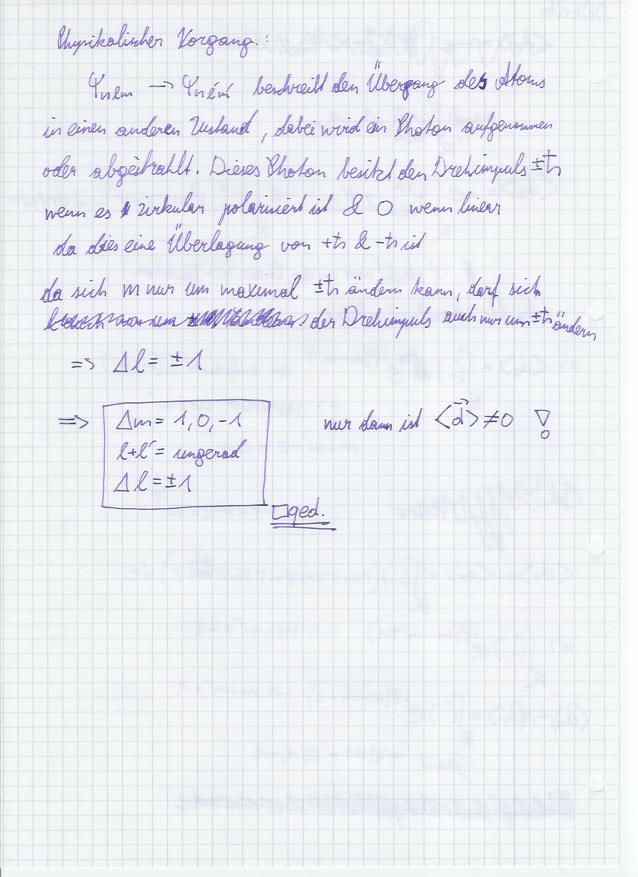 Physikalischer Vorgang:
Ψnlm → Ψn'l'm' beschreibt den Übergang des Atoms
in einen anderen Zustand, dabei wird ein Photon aufgenommen
oder abgestrahlt. Dieses Photon besitzt den Drehimpuls ±ħ
wenn es zirkular polarisiert ist & 0 wenn linear
da dies eine Überlagung von +ħ & -ħ ist
da sich m nur um maximal ±ħ ändern kann, darf sich
der Drehimpuls auch nur um ±ħ ändern
=> Δl = ±1
=> Δm = 1, 0, -1 nur dann ist <d⃗> ≠ 0 !
l+l' = ungerad
Δl = ±1
□ qed.